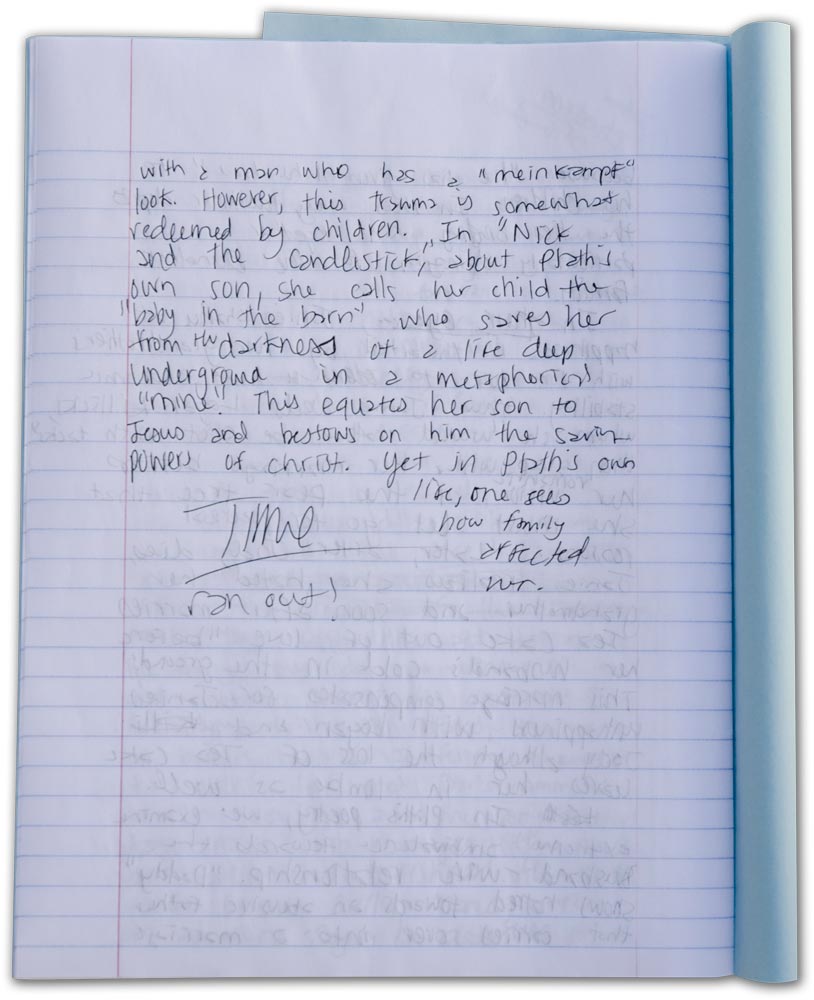 with a man who has a "meinkampf"
look. However, this trauma is somewhat
redeemed by children. In "Nick
and the Candlestick," about Plath's
own son, she calls her child the
"baby in the barn" who saves her
from the darkness of a life deep
underground in a metaphorical
"mine". This equates her son to
Jesus and bestows on him the saving
powers of christ. Yet in Plath's own
life, one sees
how family
affected
her.
Time
ran out!